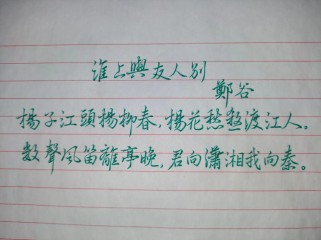 淮上與友人别
鄭谷
楊子江頭楊柳春，楊花愁殺渡江人。
数聲風笛離亭晚，君向瀟湘我向秦。